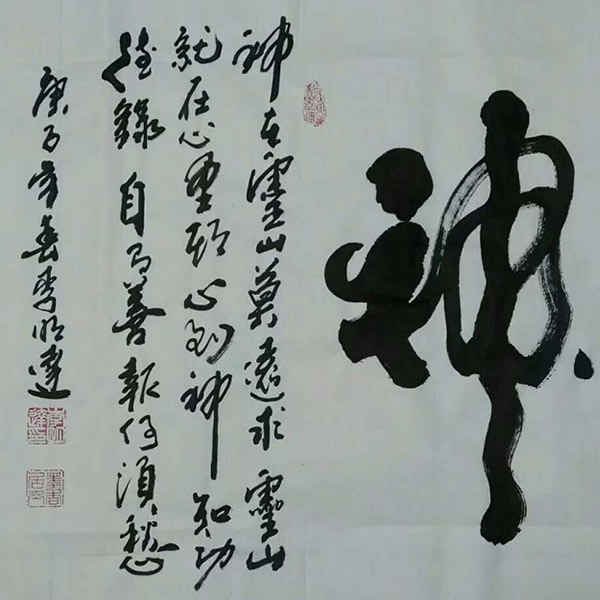 神
神在靈山莫遠求靈山
就在心里頭心到神知功
德錄自有善報何須愁
庚子年春李明達